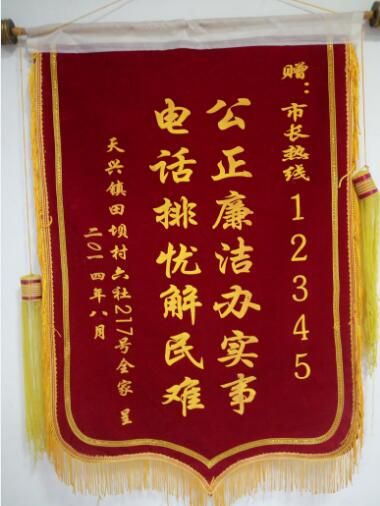 赠：市长热线12345
公正廉洁办实事
电话排忧解民难
天兴镇田坝村六社217号全家 呈
二〇一四年八月